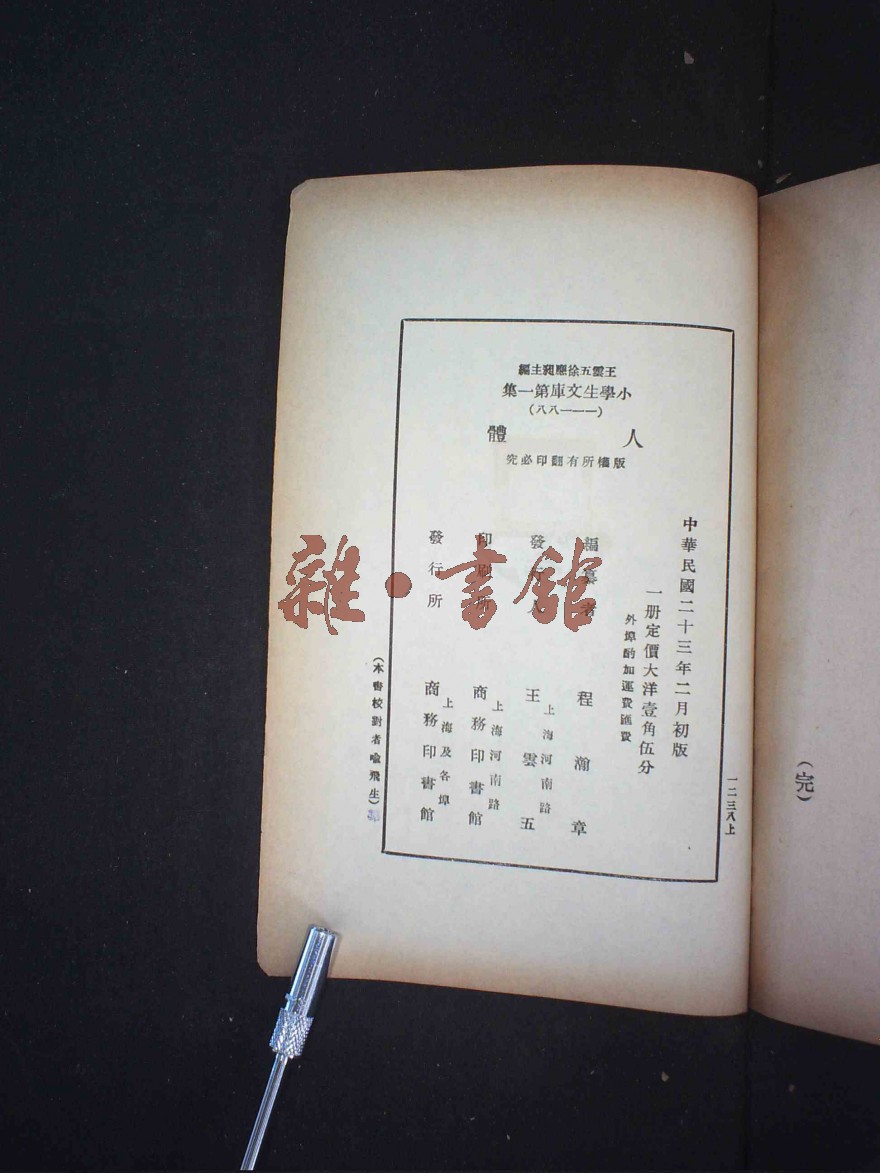 王雲五徐應昶主編
小學生文庫第一集
(一一一八八)
人體
版權所有翻印必究
中華民國二十三年二月初版
一册定價大洋壹角伍分
外埠酌加運費匯費
編纂者 程瀚章
發行人 王雲五
上海河南路
印刷所 商務印書館
上海河南路
發行所 商務印書館
上海及各埠
(本書校對者喻飛生)
一二三八上
(完)
雜·書館